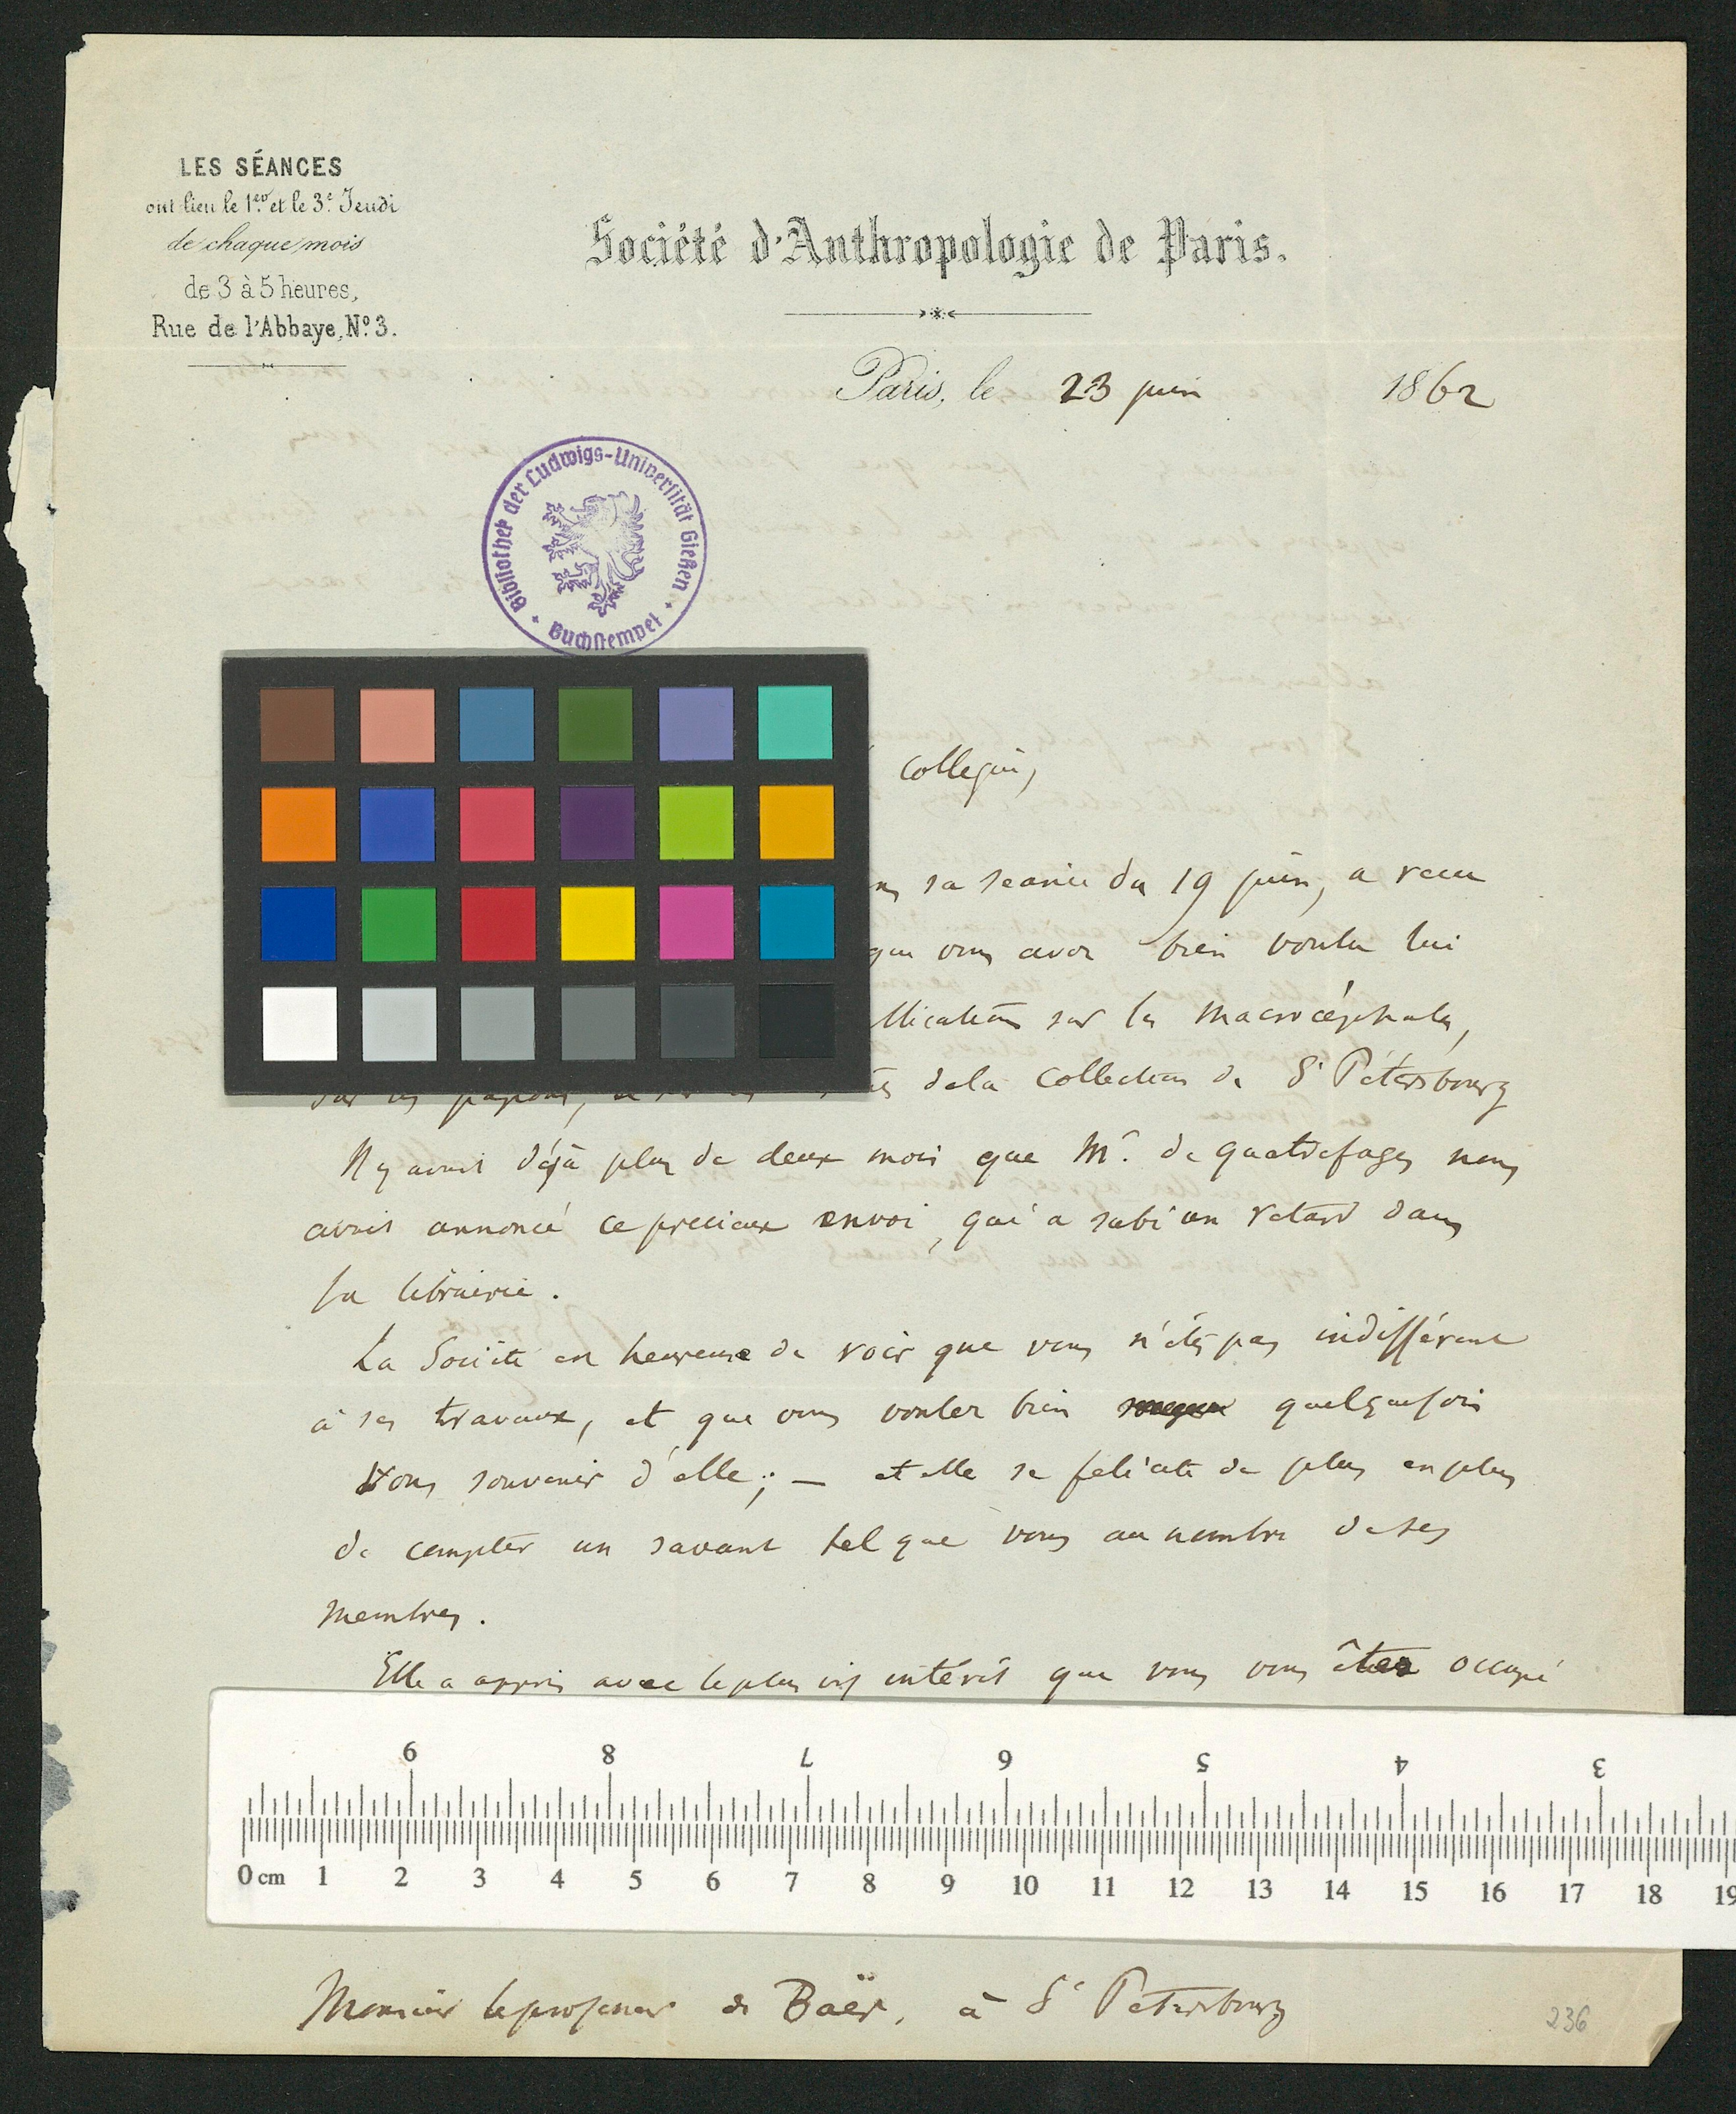 LES SÉANCES
ont lieu le 1er et le 3e Jeudi
de chaque mois
de 3 à 5 heures,
Rue de l'Abbaye, No 3.
Société d'Anthropologie de Paris.
Paris, le 23 juin 1862
Bibliothek der Ludwigs-Universität Gießen
Buchstempel
collegue,
sa seance du 19 juin, a recu
que vous avez bien voulu lui
sur les Macrocéphales,
sur les papous, de la collection de St Pétersbourg
Il y avait déjà plus de deux mois que Mr. de Quatrefages nous
avait annoncé ce precieux envoi, qui a subi un retard dans
la librairie.
La Société est heureuse de voir que vous n'êtes pas indifférent
à ses travaux, et que vous voulez bien quelquefois
vous souvenir d'elle; — et elle se felicite de plus en plus
de compter un savant tel que vous au nombre de ses
membres.
Elle a appris avec le plus vif intérêt que vous vous êtes occupé
9 8 7 6 5 4 3
0 cm 1 2 3 4 5 6 7 8 9 10 11 12 13 14 15 16 17 18 19
Monsieur le professeur de Baër, à St Petersbourg
236